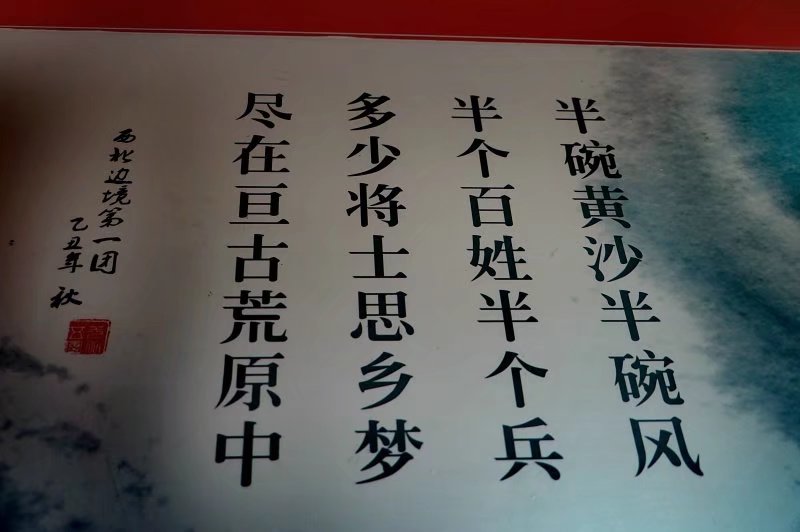 半碗黄沙半碗风
半个百姓半个兵
多少将士思乡梦
尽在亘古荒原中
西北边境第一团
乙丑年 秋